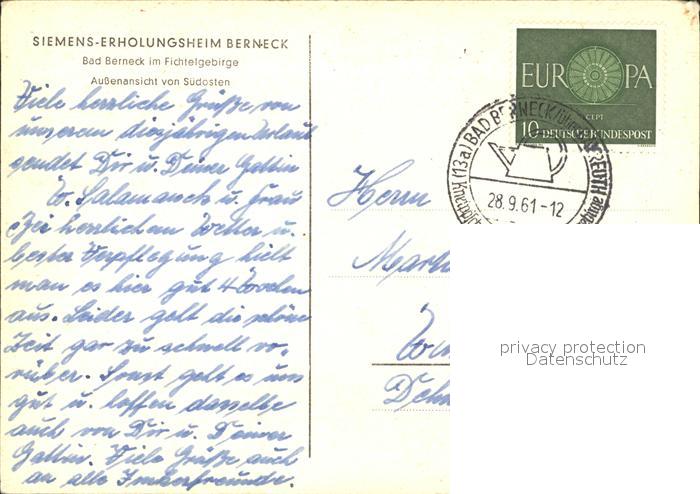 SIEMENS-ERHOLUNGSHEIM BERNECK
Bad Berneck im Fichtelgebirge
Außenansicht von Südosten
Viele herrliche Grüße von
unserem diesjährigen Urlaub
sendet Dir u. Deiner Gattin
W. Salamanek u. Frau
Bei herrlichem Wetter u.
bester Verpflegung hielt
man es hier gut 4 Wochen
aus. Leider geht die schöne
Zeit gar zu schnell vo-
rüber. Sonst geht es uns
gut u. hoffen dasselbe
auch von Dir u. Deiner
Gattin. Viele Grüße auch
an alle Imkerfreunde.
EUROPA
CEPT
10 DEUTSCHE BUNDESPOST
(13a) BAD BERNECK
28.9.61-12
Herrn
privacy protection
Datenschutz